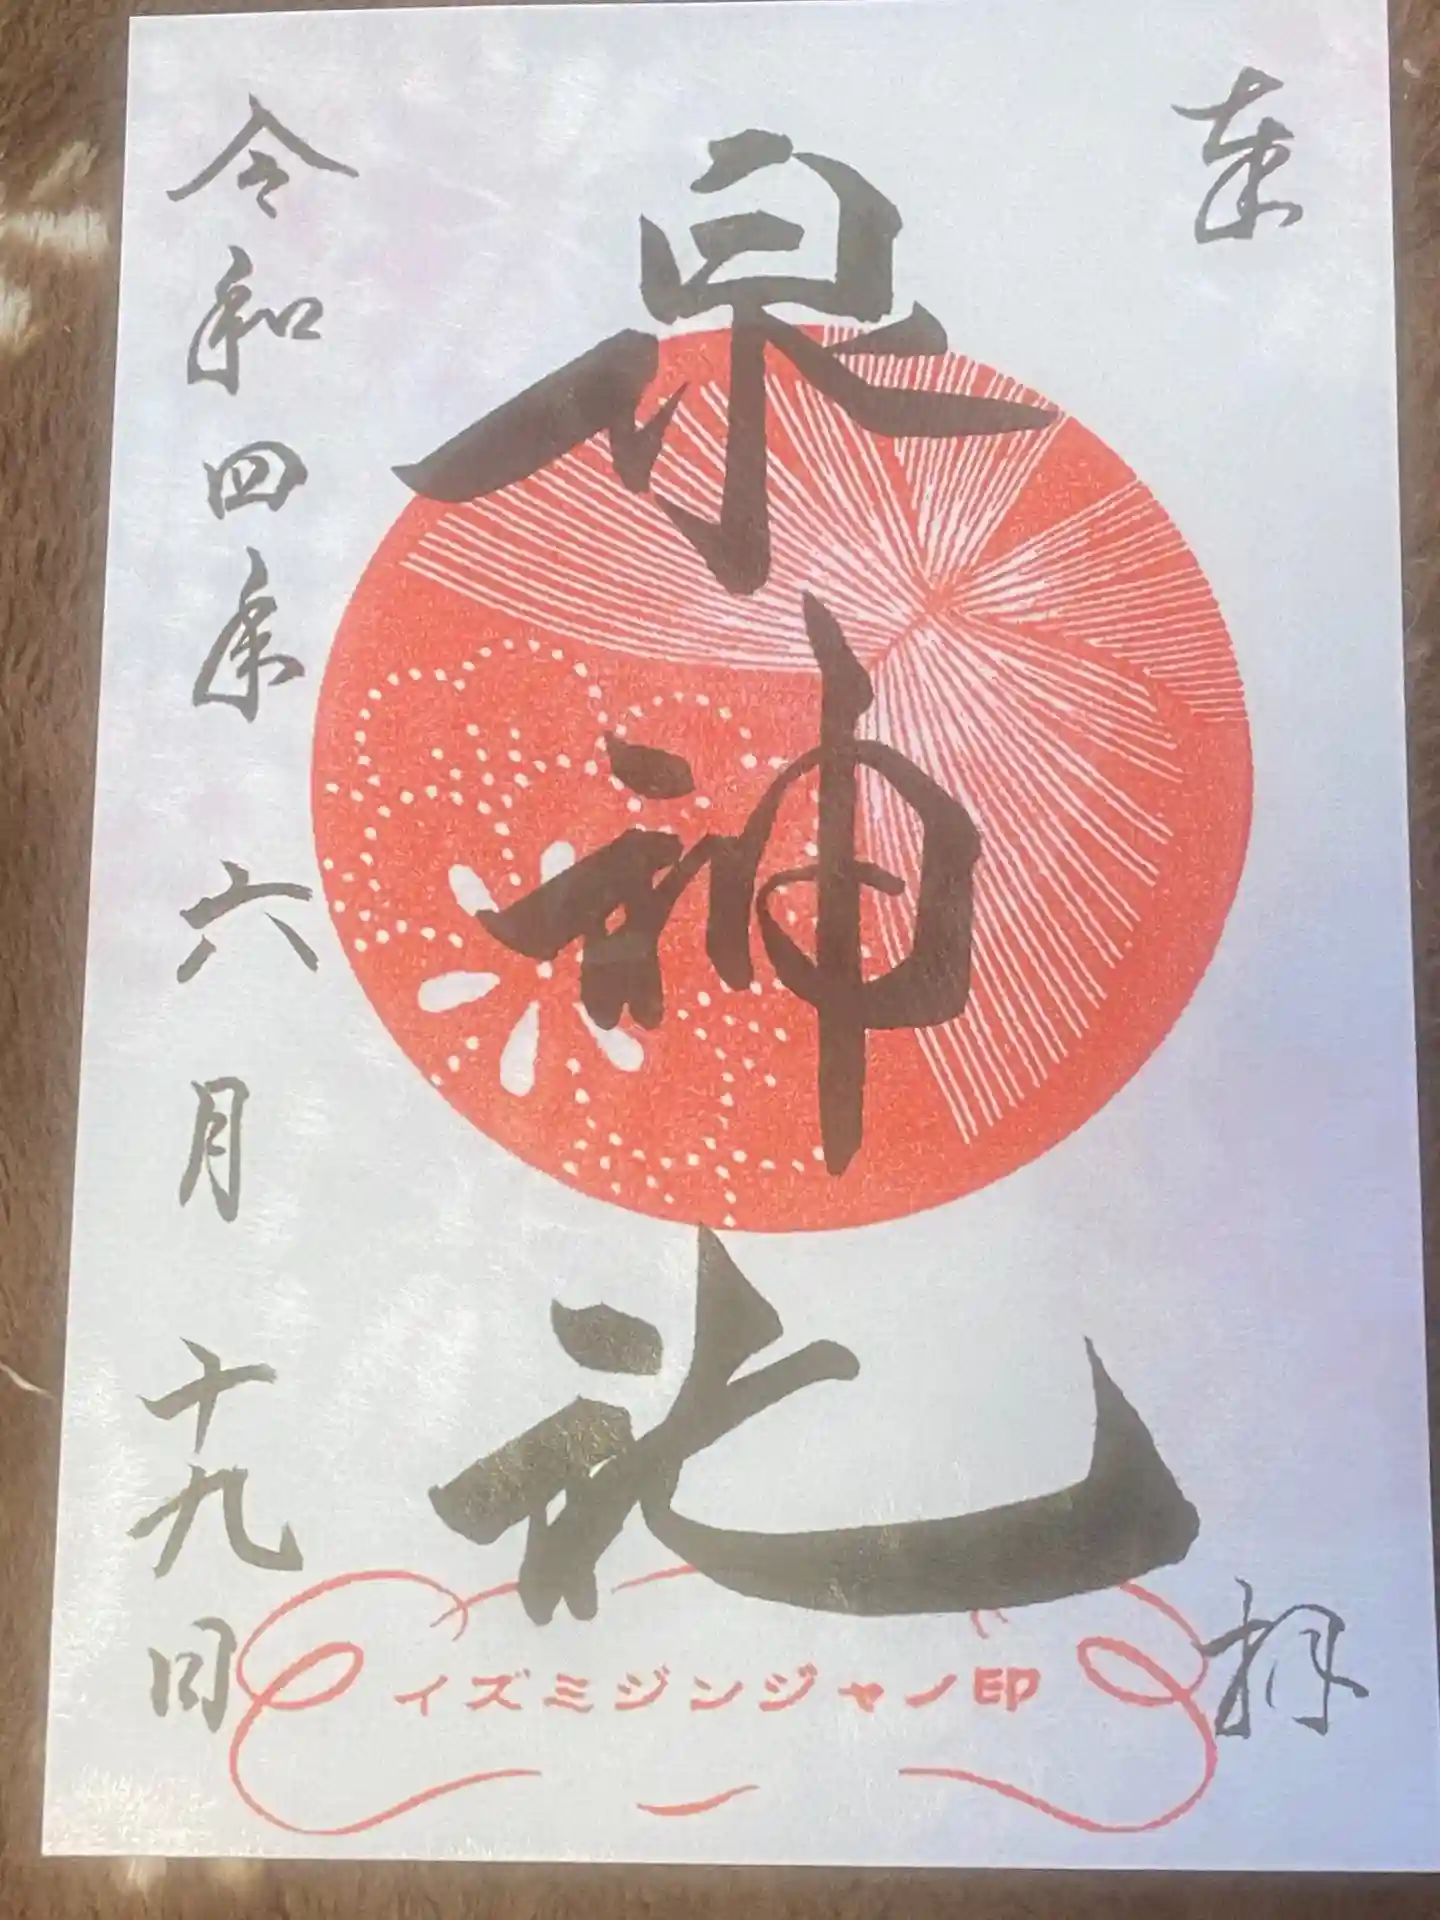 奉拝
泉神社
イズミジンジャノ印
令和四年六月十九日